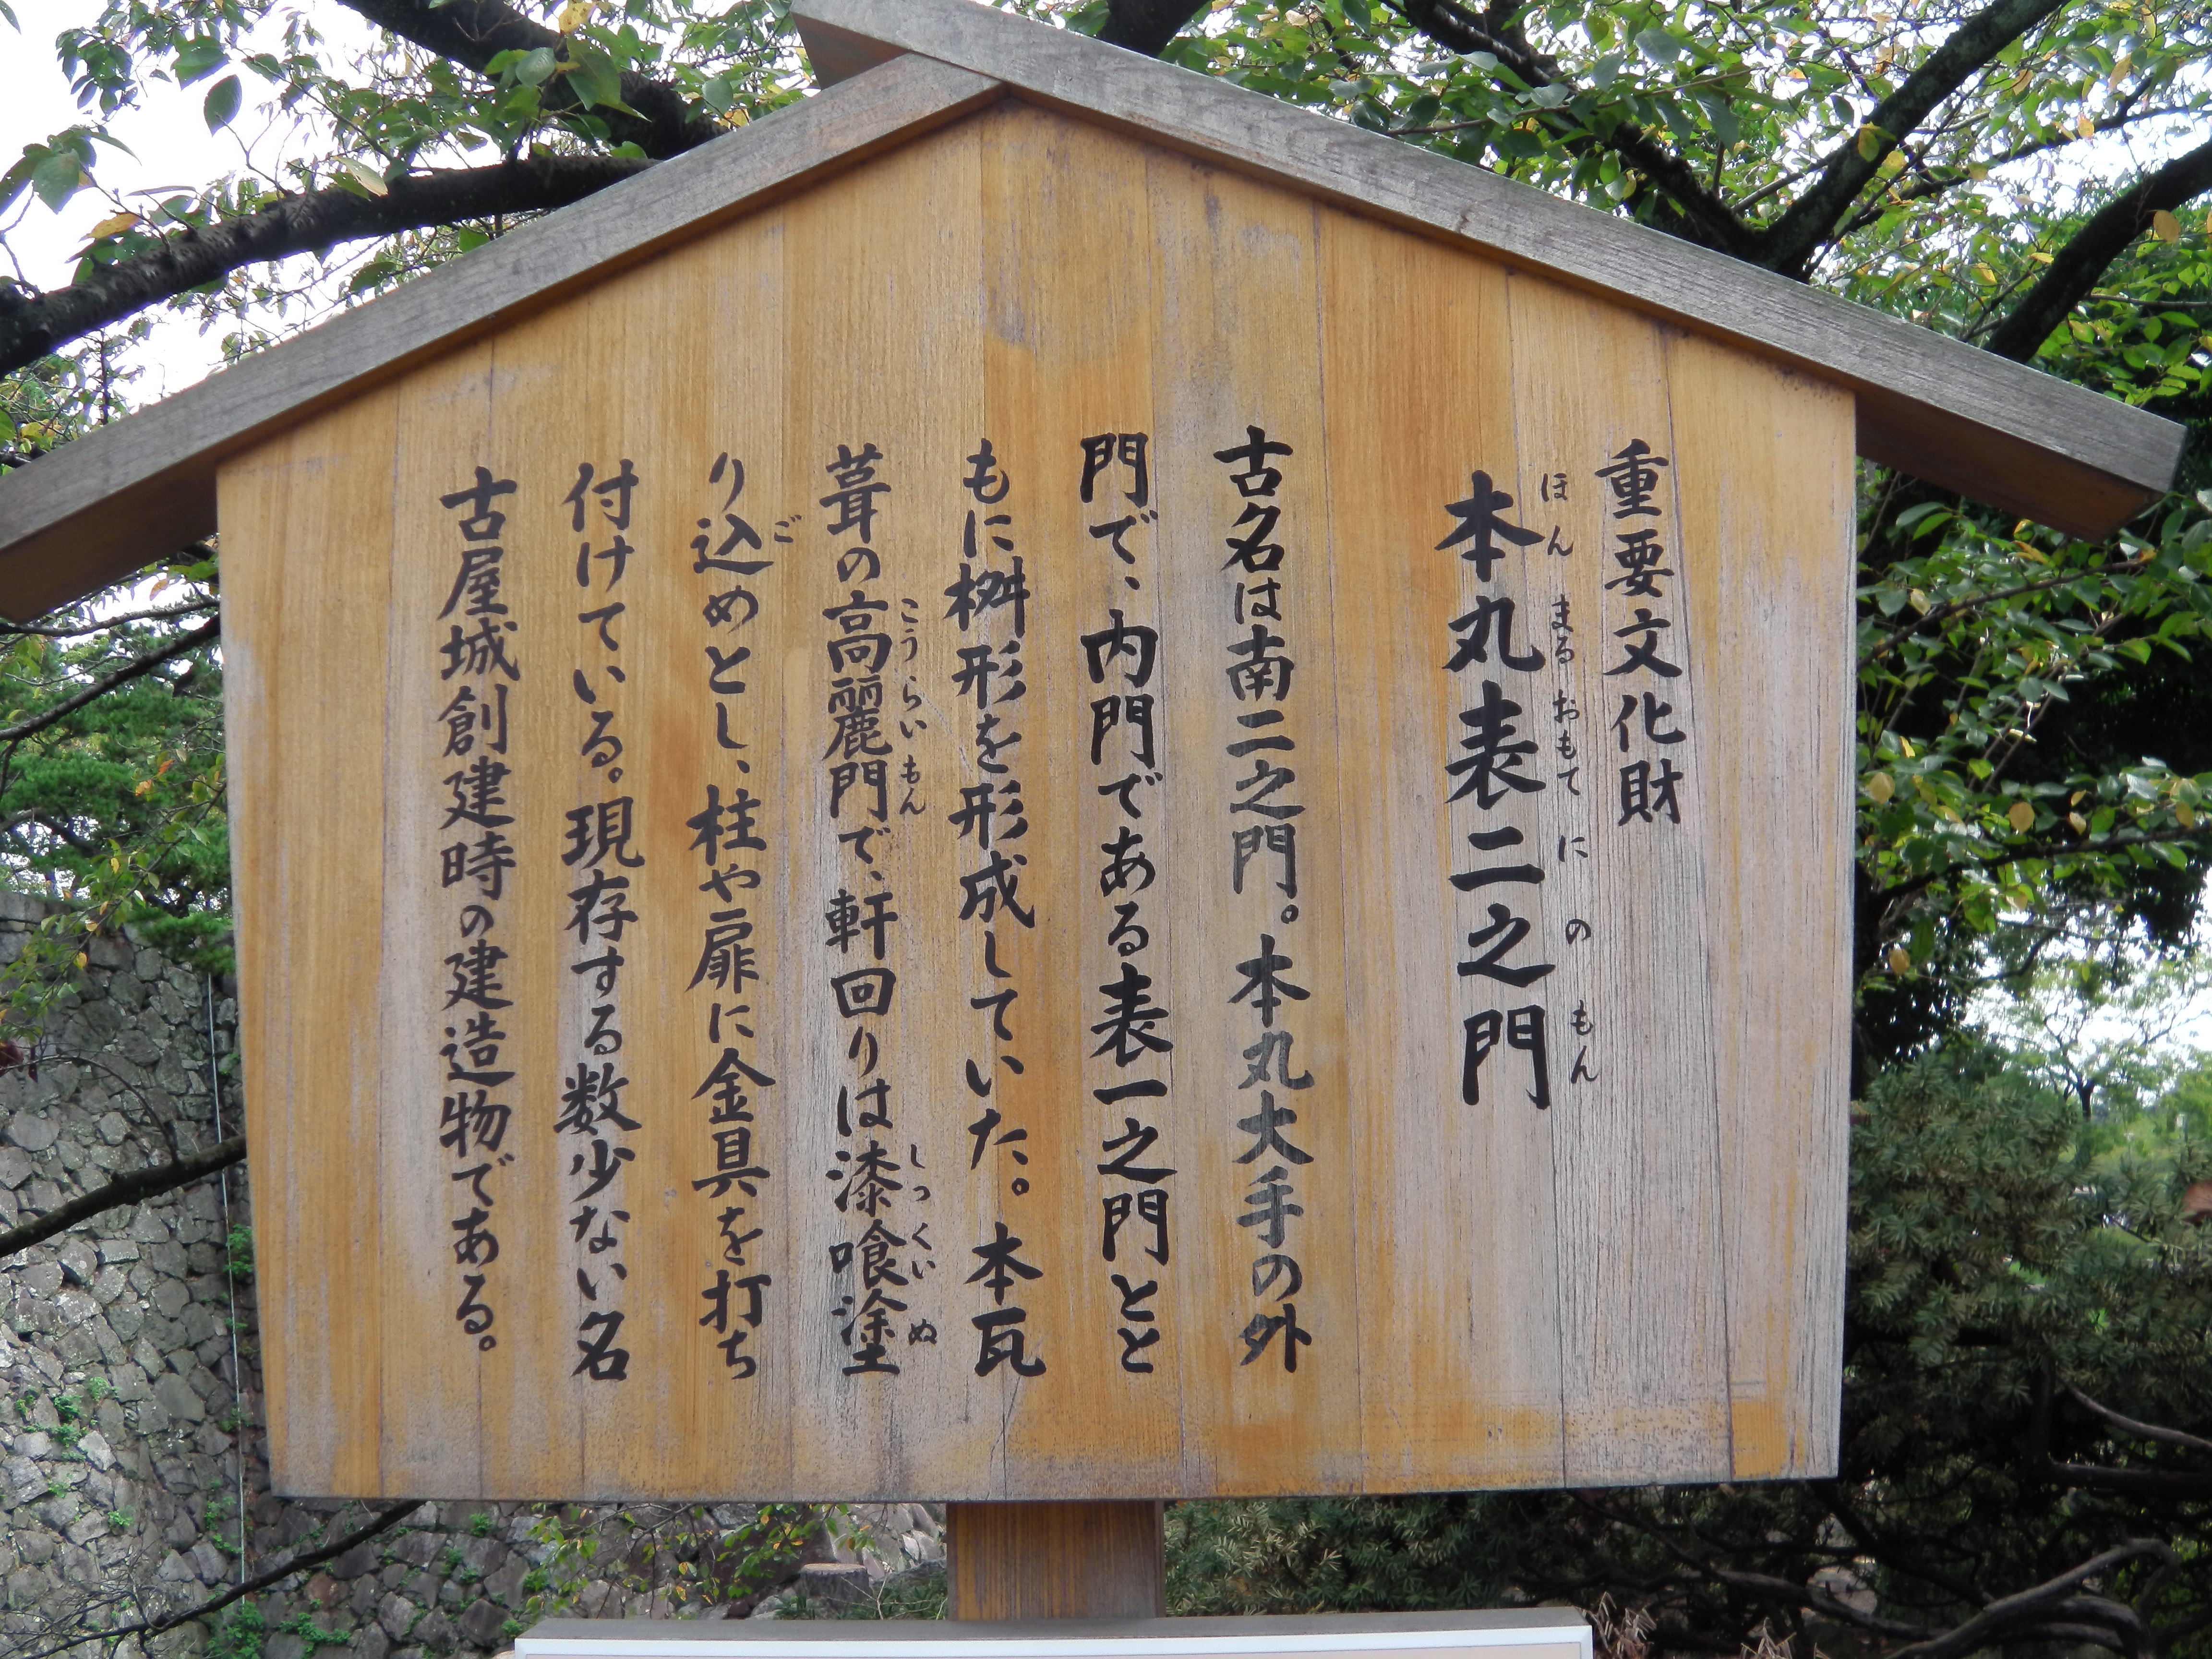 重要文化財
本丸表二之門
ほんまるおもてにのもん
古名は南二之門。本丸大手の外
門で、内門である表一之門とと
もに桝形を形成していた。本瓦
葺の高麗門で、軒回りは漆喰塗
こうらいもん しっくいぬ
り込めとし、柱や扉に金具を打ち
ご
付けている。現存する数少ない名
古屋城創建時の建造物である。